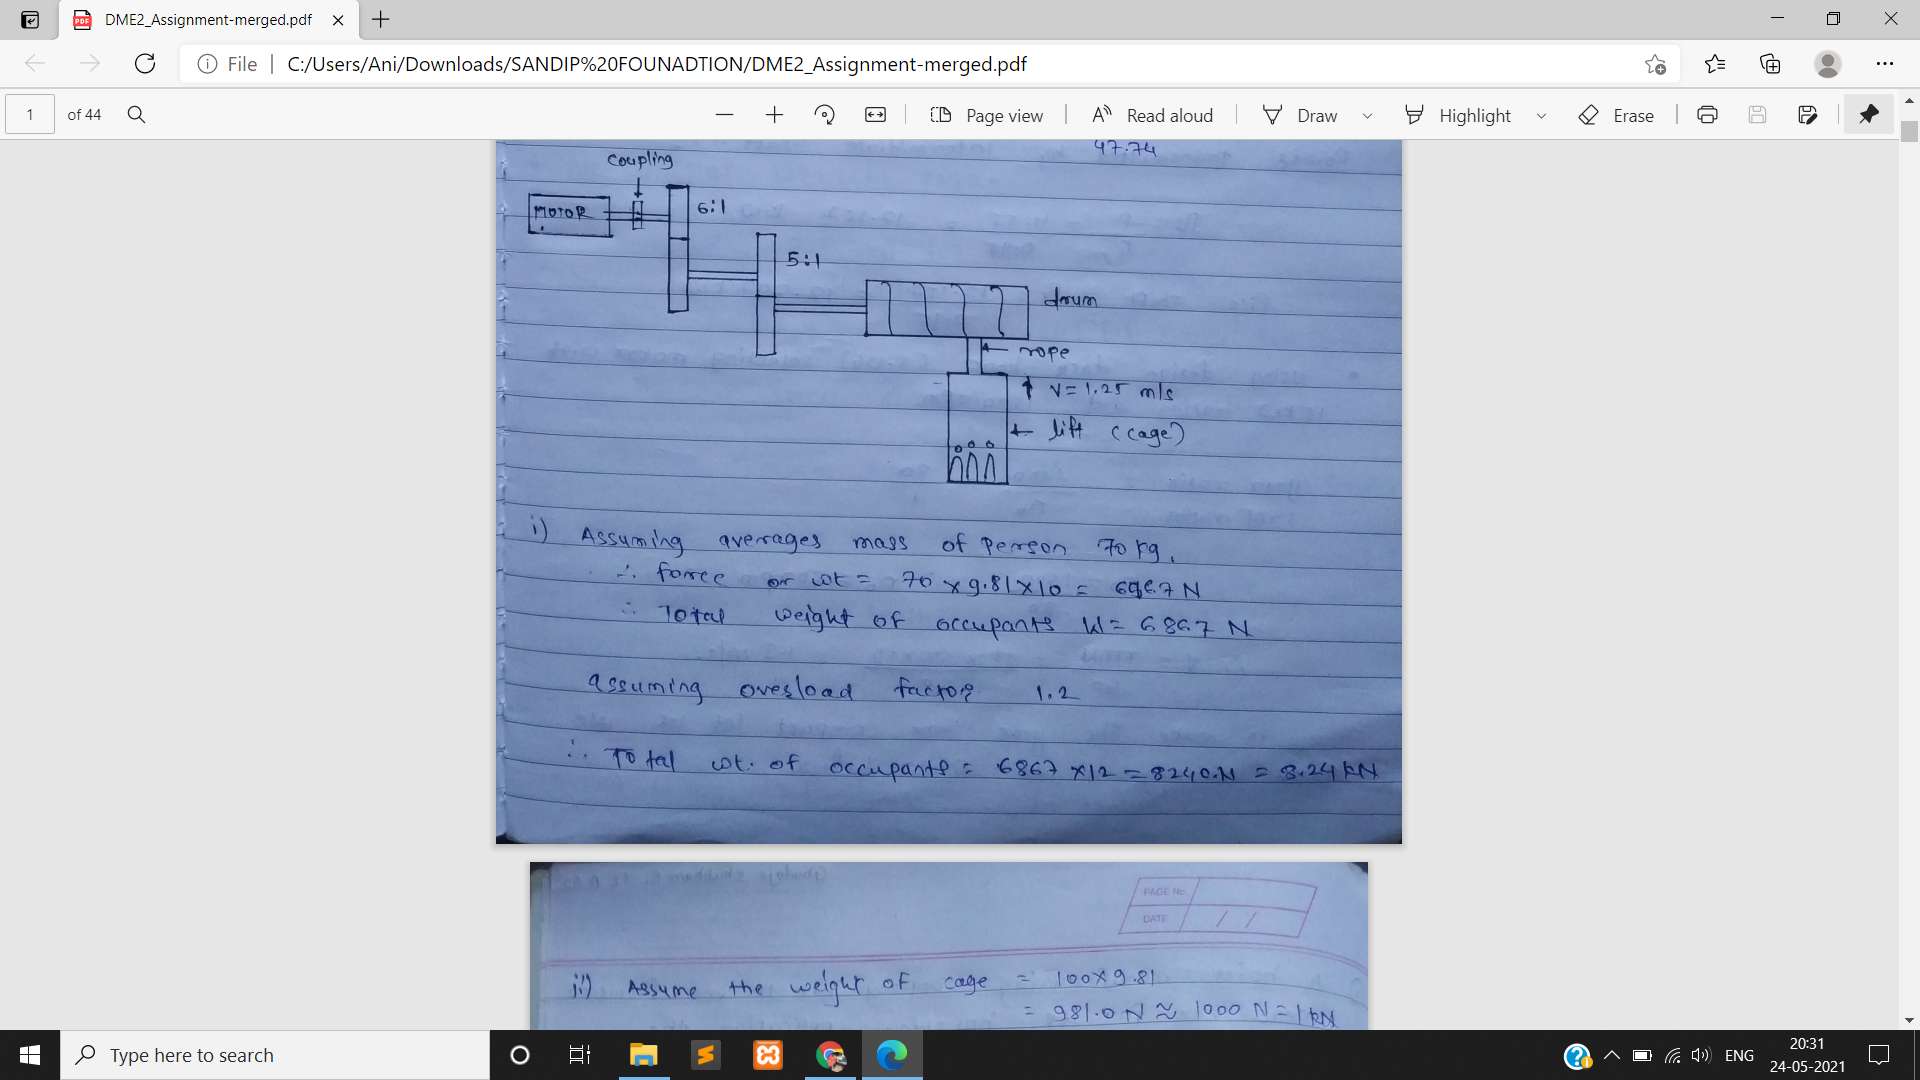 DME2_Assignment-merged.pdf
File | C:/Users/Ani/Downloads/SANDIP%20FOUNADTION/DME2_Assignment-merged.pdf
1 of 44 Page view Read aloud Draw Highlight Erase
47.74
coupling
MOTOR
6:1
5:1
drum
rope
V = 1.25 m/s
lift (cage)
i) Assuming averages mass of person 70 kg.
∴ force or wt = 70 × 9.81 × 10 = 6867 N
∴ Total weight of occupants W = 6867 N
assuming overload factor 1.2
∴ Total wt. of occupants = 6867 × 12 = 8240.N = 8.24 kN
PAGE No.
DATE / /
ii) Assume the weight of cage = 100 × 9.81
= 981.0 N ≈ 1000 N = 1 kN
Type here to search
ENG
20:31
24-05-2021